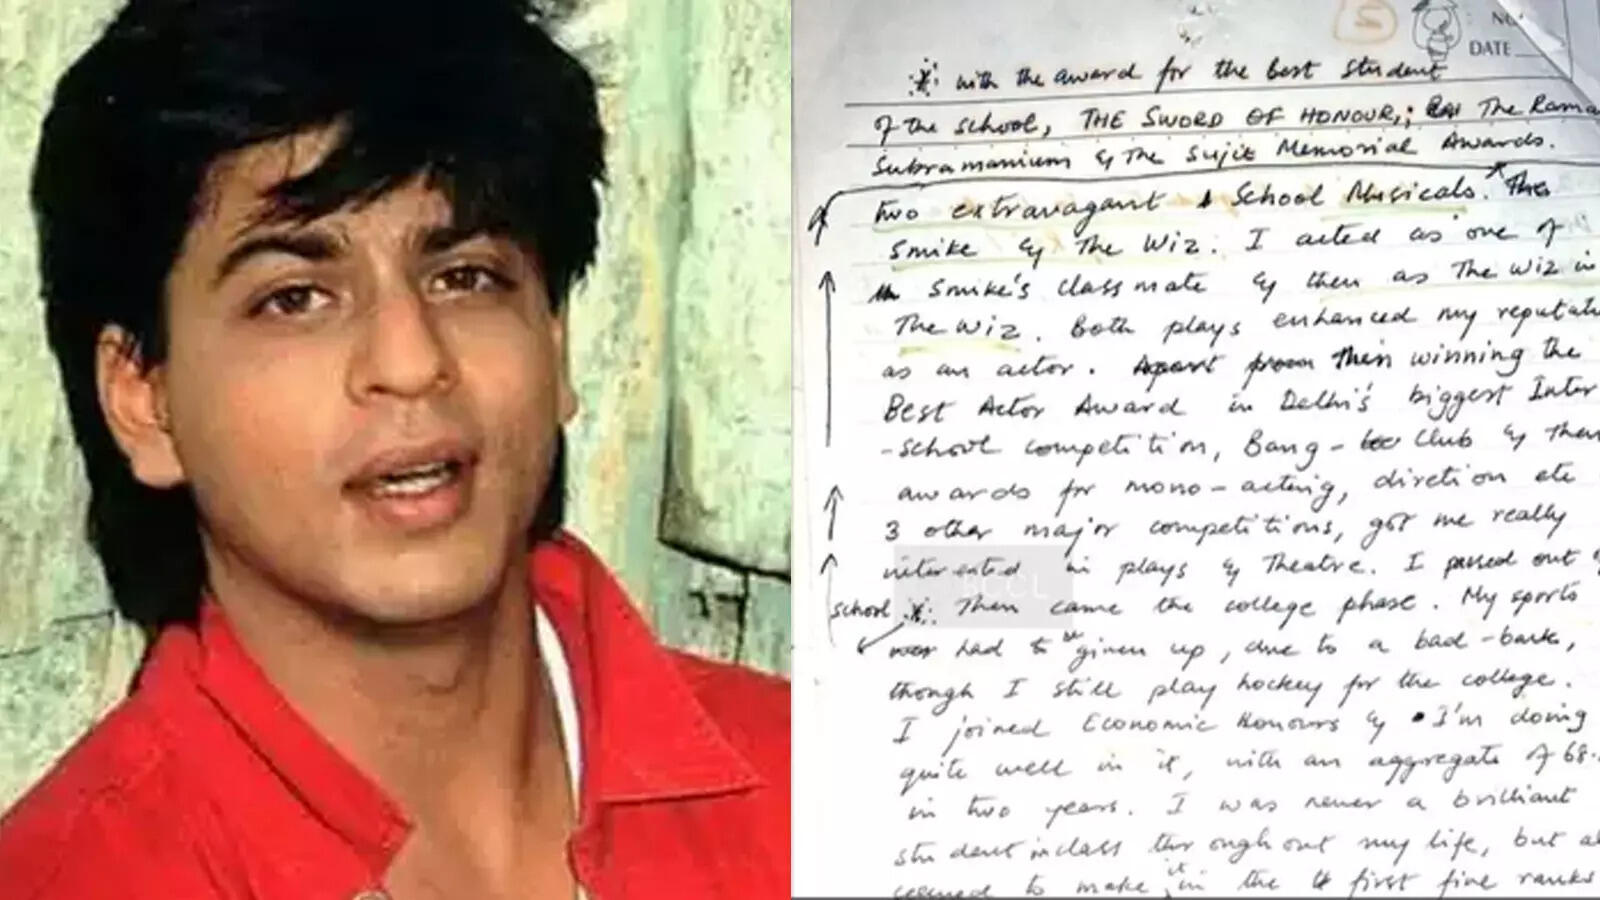 5
NO.
DATE
with the award for the best student
of the school, THE SWORD OF HONOUR,; The Rama
Subramanium & The Sujit Memorial Awards.
two extravagant School Musicals. The
Smike & The Wiz. I acted as one of
Smike's classmate & then as The Wiz in
The Wiz. Both plays enhanced my reputati
as an actor. Apart from then winning the
Best Actor Award in Delhi's biggest Inter
-school competition, Bang- Club & then
awards for mono-acting, diretion etc
3 other major competitions, got me really
interested in plays & Theatre. I passed out o
school Then came the college phase. My sports
had to be given up, due to a bad-back,
though I still play hockey for the college.
I joined Economic Honours & I'm doing
quite well in it, with an aggregate of 68.
in two years. I was never a brilliant
student in class throughout my life, but al
seemed to make it in the first five ranks